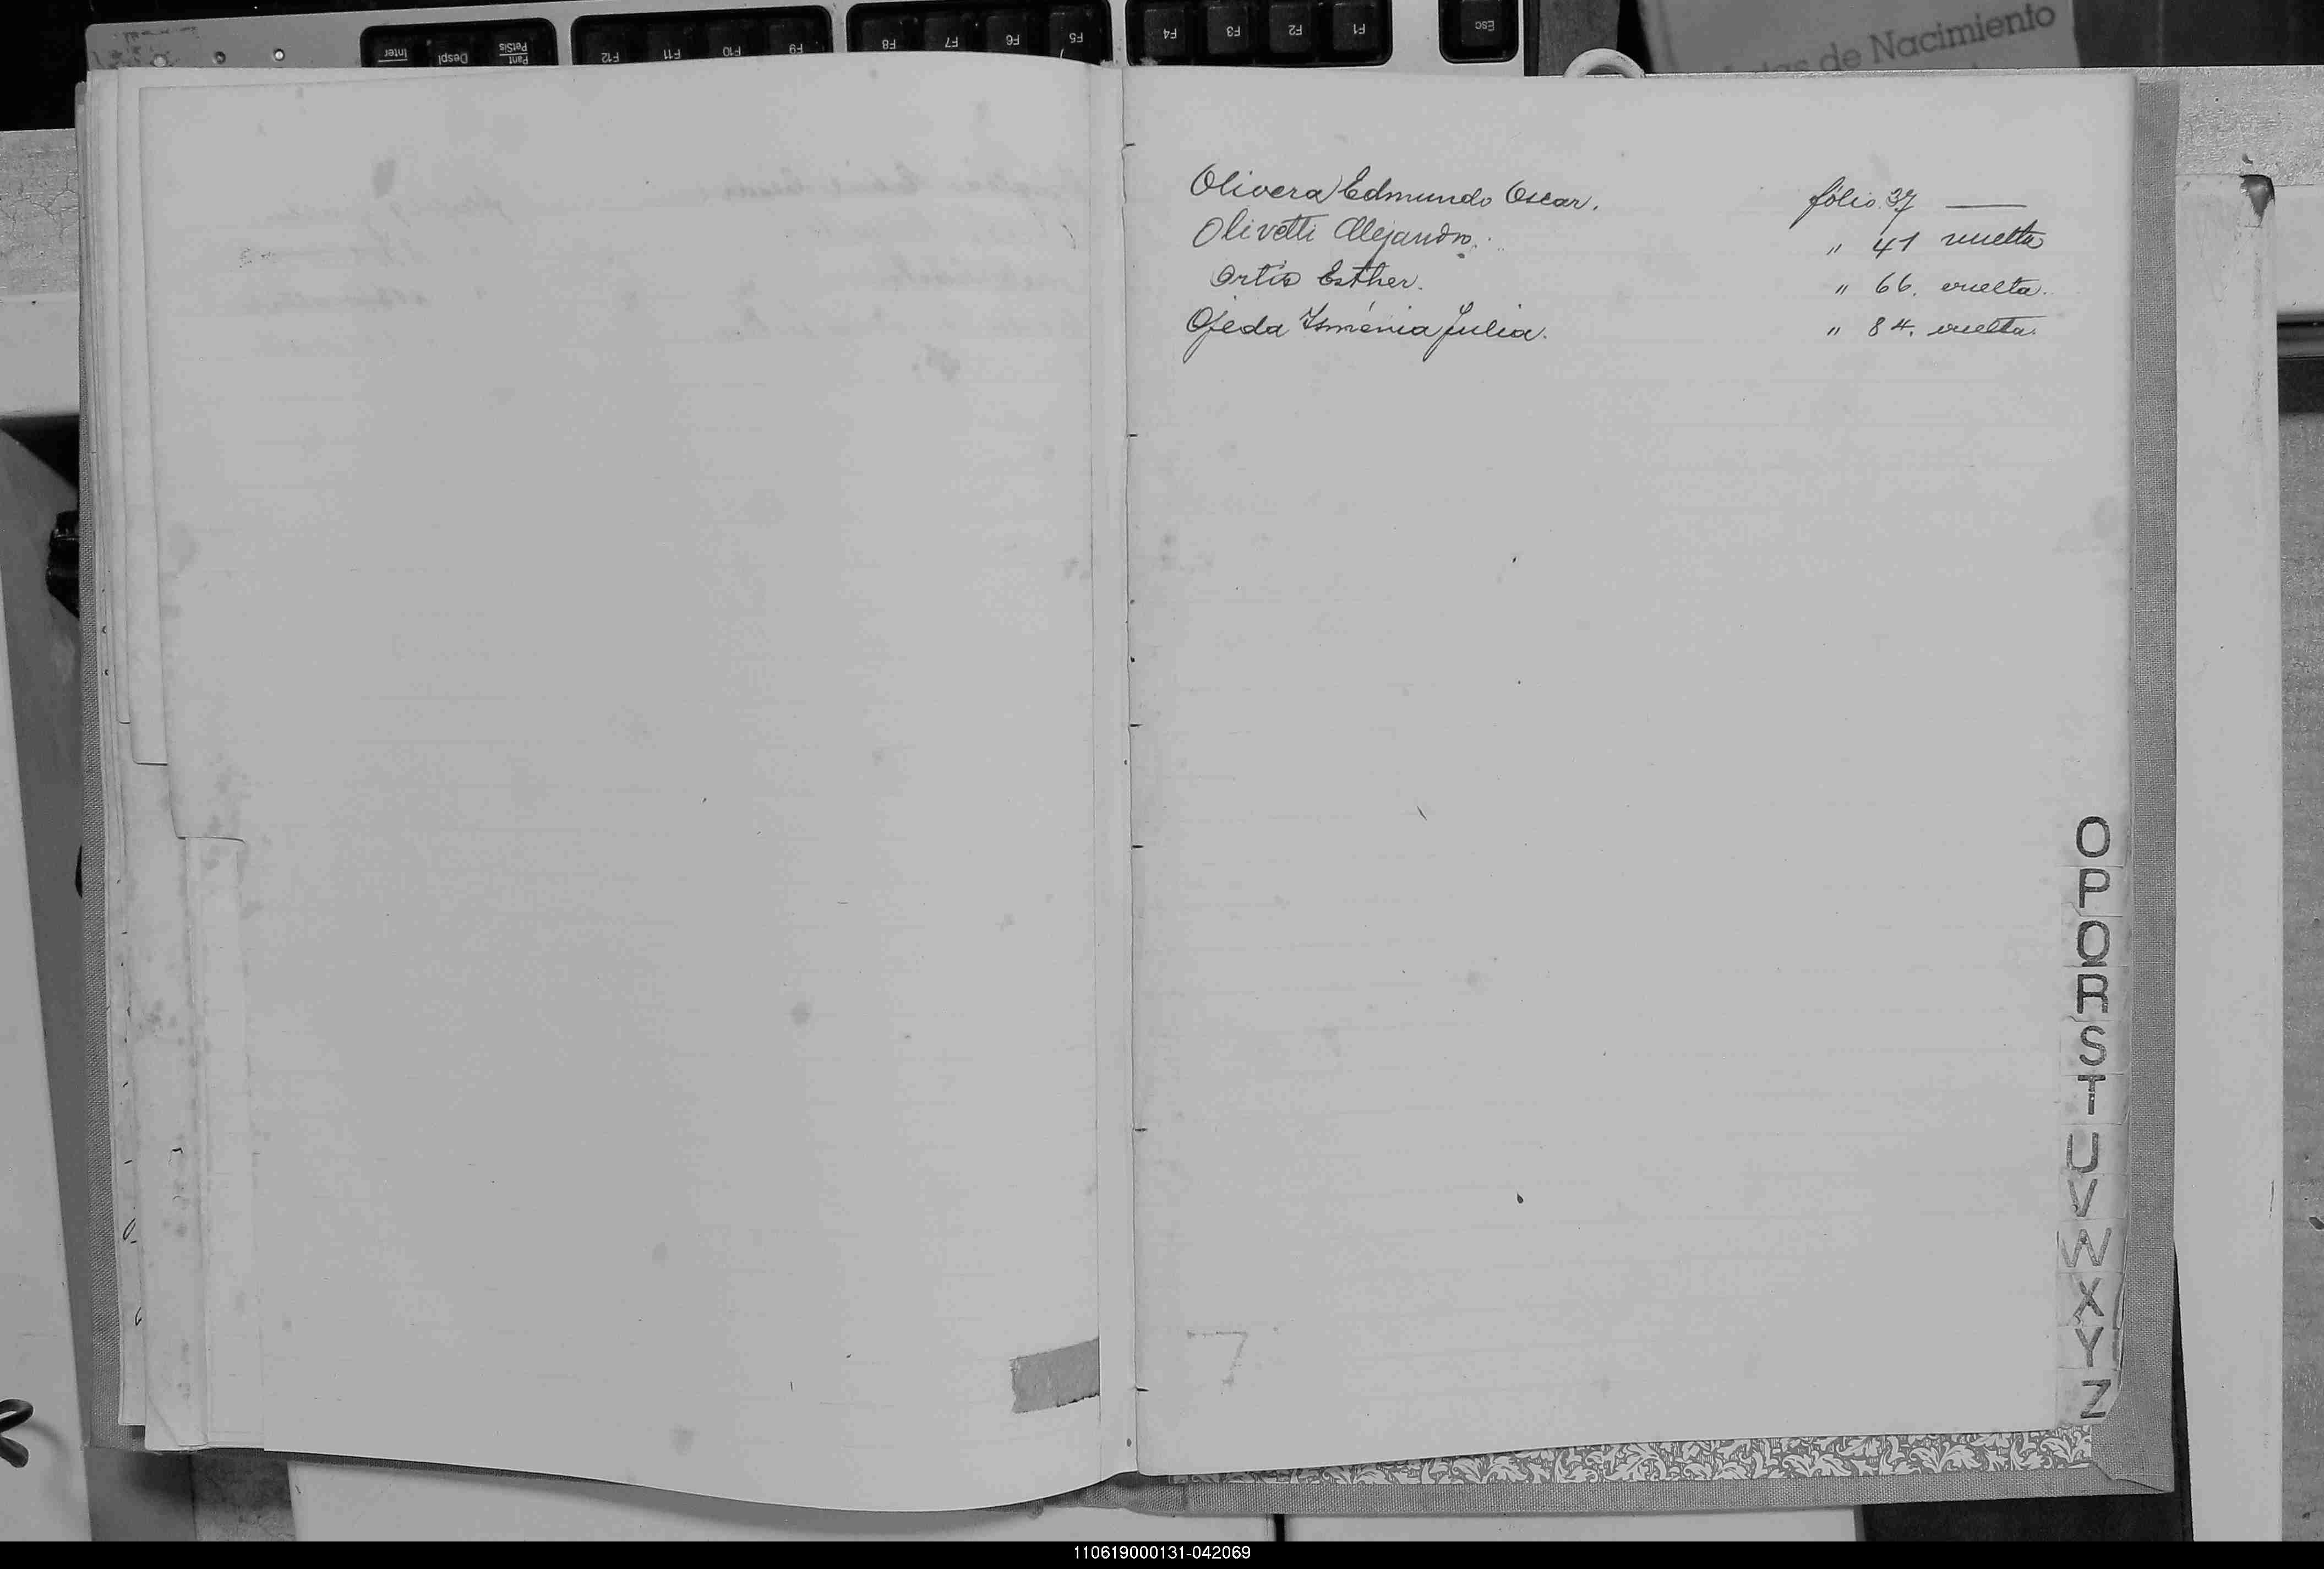 Inter
Despl
Pant
PetSis
F12
F11
F10
F9
F8
F7
F6
F5
F4
F3
F2
F1
Esc
de Nacimiento
Olivera Edmundo Oscar. folio 37 ——
Olivetti Alejandro. " 41 vuelta
Ortis Esther. " 66. vuelta.
Ojeda Isménia Julia. " 84. vuelta.
O
P
Q
R
S
T
U
V
W
X
Y
Z
7
110619000131-042069